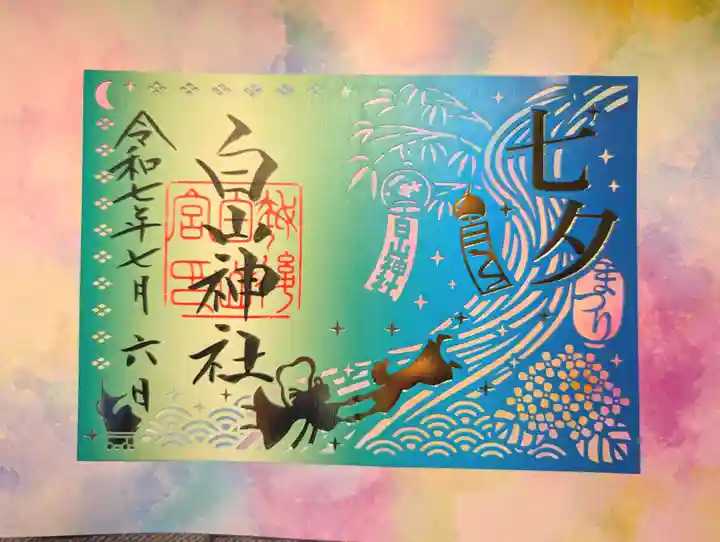 七夕
まつり
白山神社
白山神社
令和七年七月六日